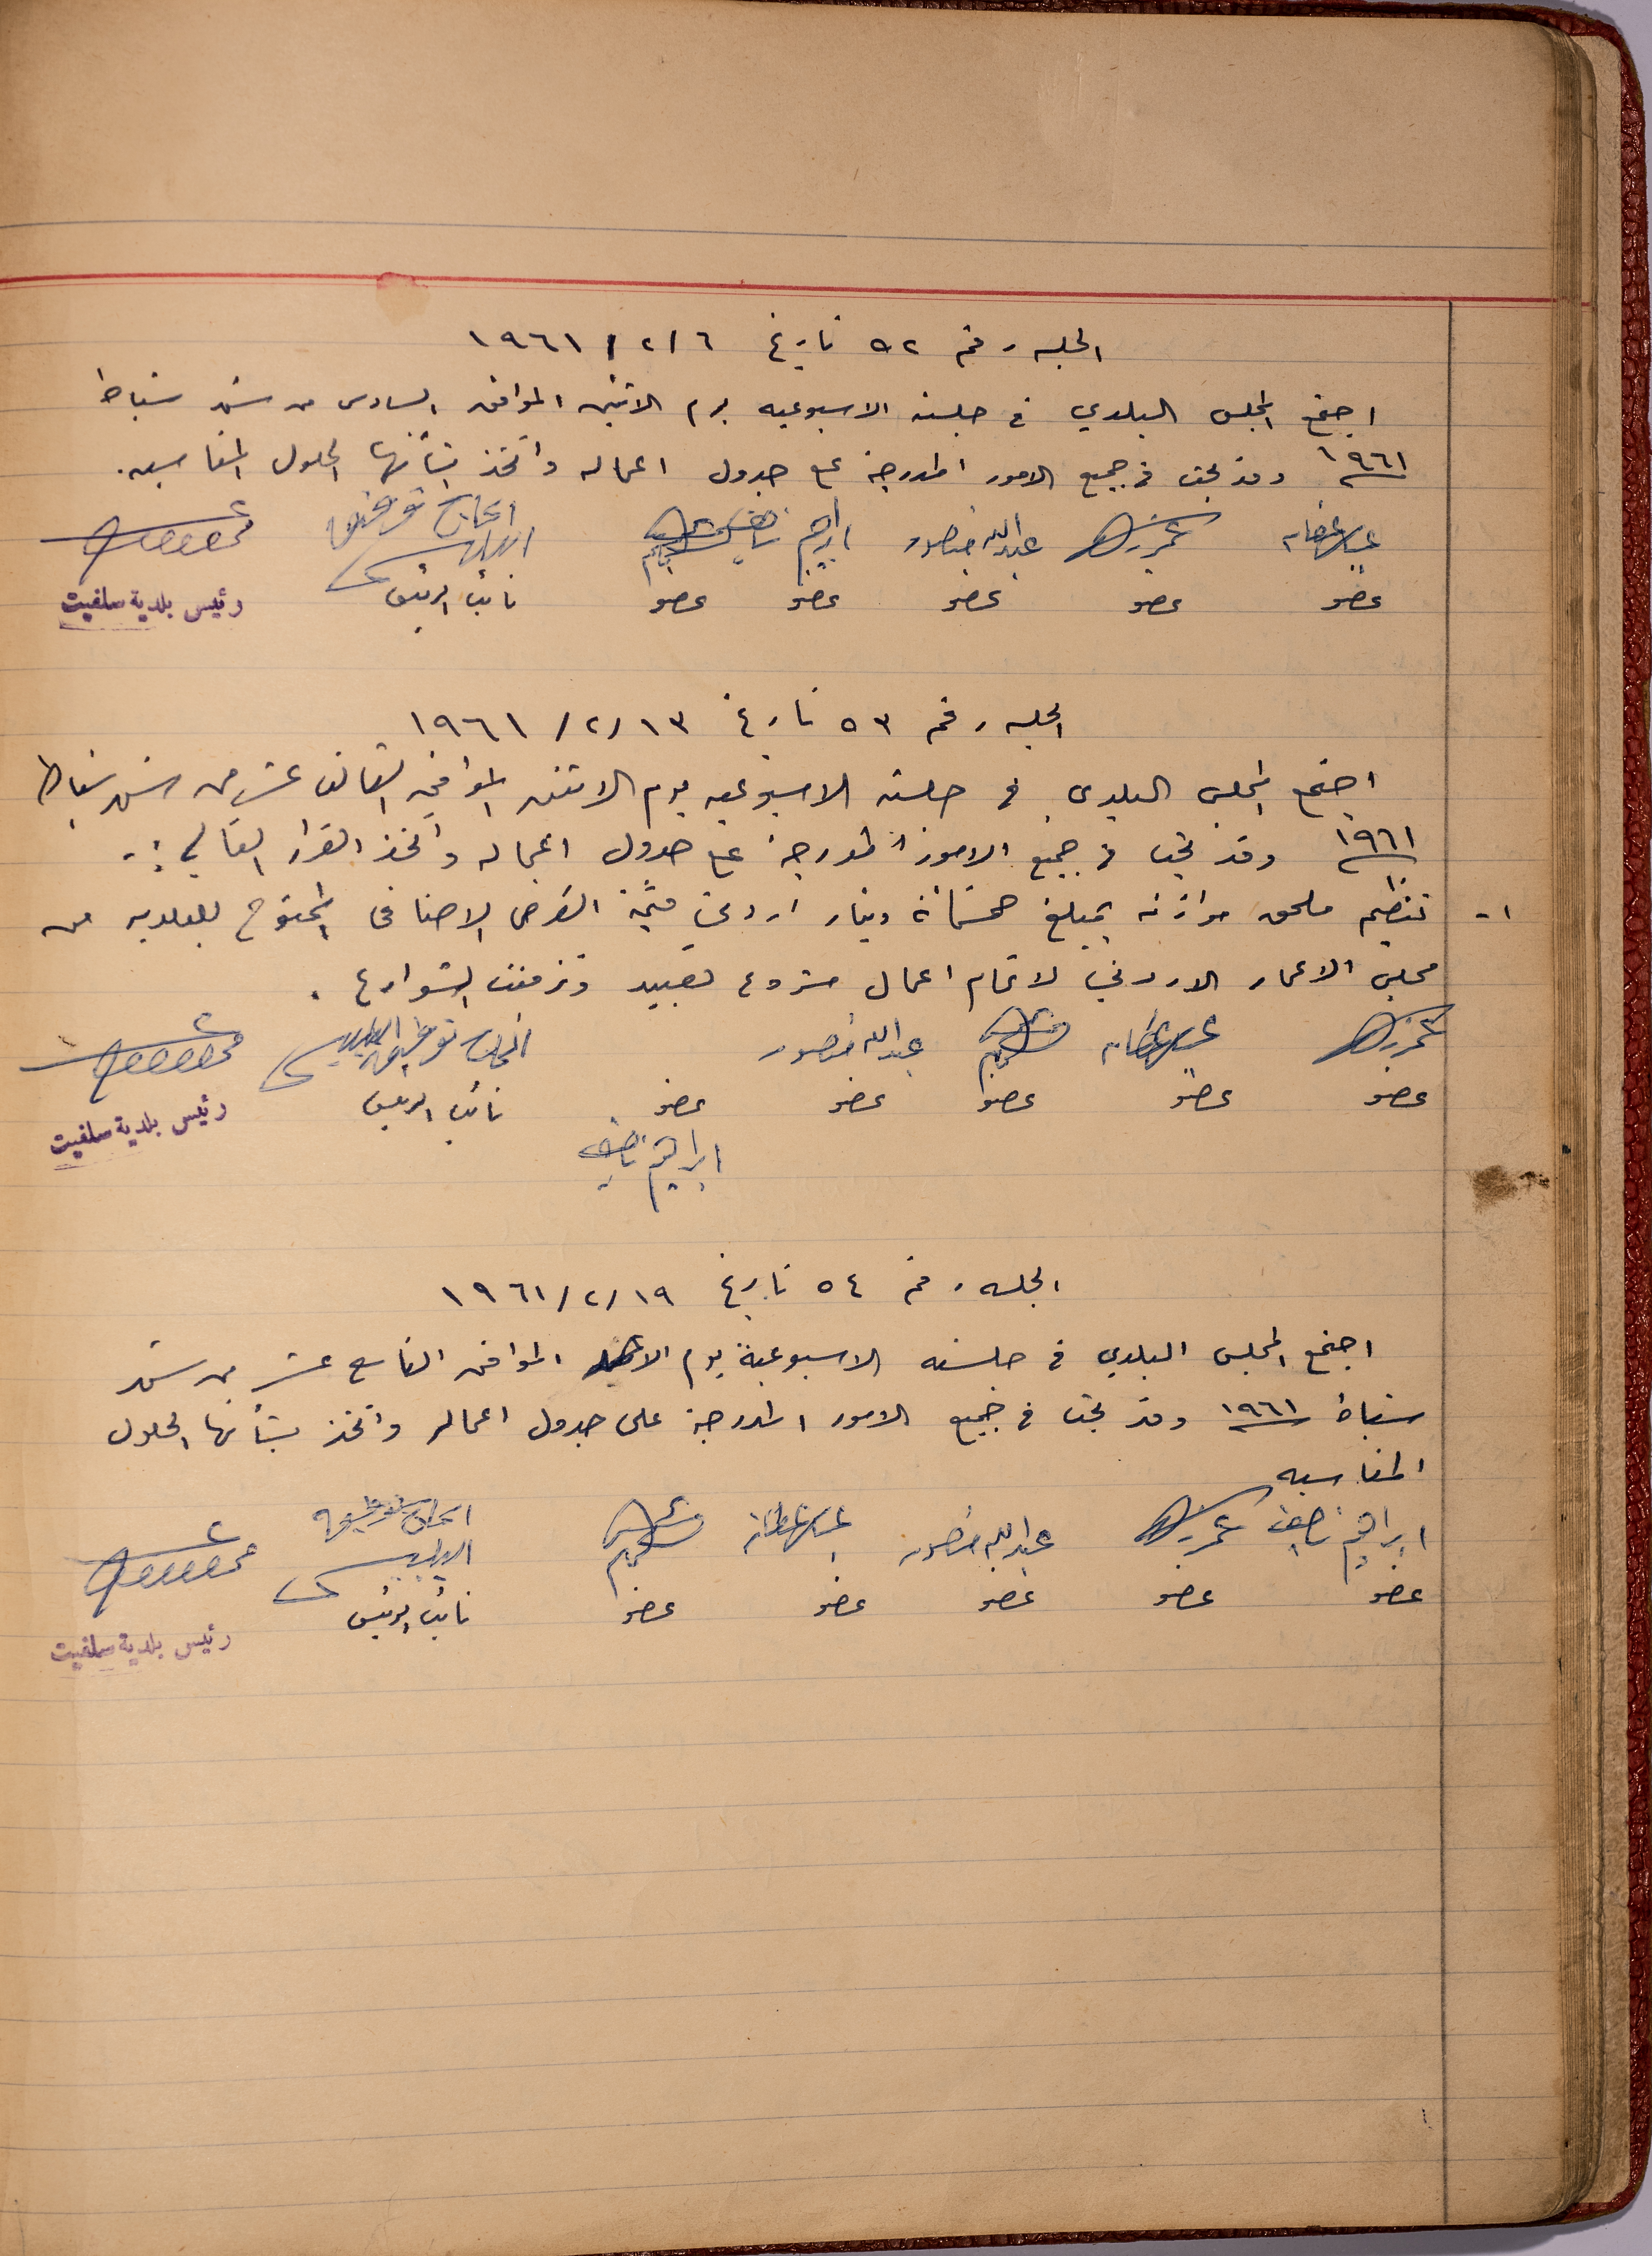 الجلسه رقم ٥٢ تاريخ ٦/٢/١٩٦١
اجتمع المجلس البلدي في جلسته الاسبوعيه يوم الاثنين الموافق السادس من شهر شباط
١٩٦١ وقد بحث في جميع الامور المدرجة على جدول اعماله واتخذ بشأنها الحلول المناسبه.
عبدالله منصور ابراهيم ناصيف الحاج توفيق
عضو عضو عضو عضو عضو نائب الرئيس رئيس بلدية سلفيت
الجلسه رقم ٥٣ تاريخ ١٣/٢/١٩٦١
اجتمع المجلس البلدي في جلسته الاسبوعيه يوم الاثنين الموافق الثالث عشر من شهر شباط
١٩٦١ وقد بحث في جميع الامور المدرجة على جدول اعماله واتخذ القرار التالي :-
١- تنظيم ملحق موازنه بمبلغ خمسمائة دينار اردني قيمة القرض الاضافي الممنوح للبلديه من
مجلس الاعمار الاردني لاتمام اعمال مشروع تعبيد وتزفيت الشوارع .
عبدالله منصور الحاج توفيق
عضو عضو عضو عضو عضو نائب الرئيس رئيس بلدية سلفيت
ابراهيم ناصيف
الجلسه رقم ٥٤ تاريخ ١٩/٢/١٩٦١
اجتمع المجلس البلدي في جلسته الاسبوعية يوم الاحد الموافق التاسع عشر من شهر
شباط ١٩٦١ وقد بحث في جميع الامور المدرجة على جدول اعماله واتخذ بشأنها الحلول
المناسبه
ابراهيم ناصيف عبدالله منصور الحاج توفيق
عضو عضو عضو عضو عضو نائب الرئيس رئيس بلدية سلفيت